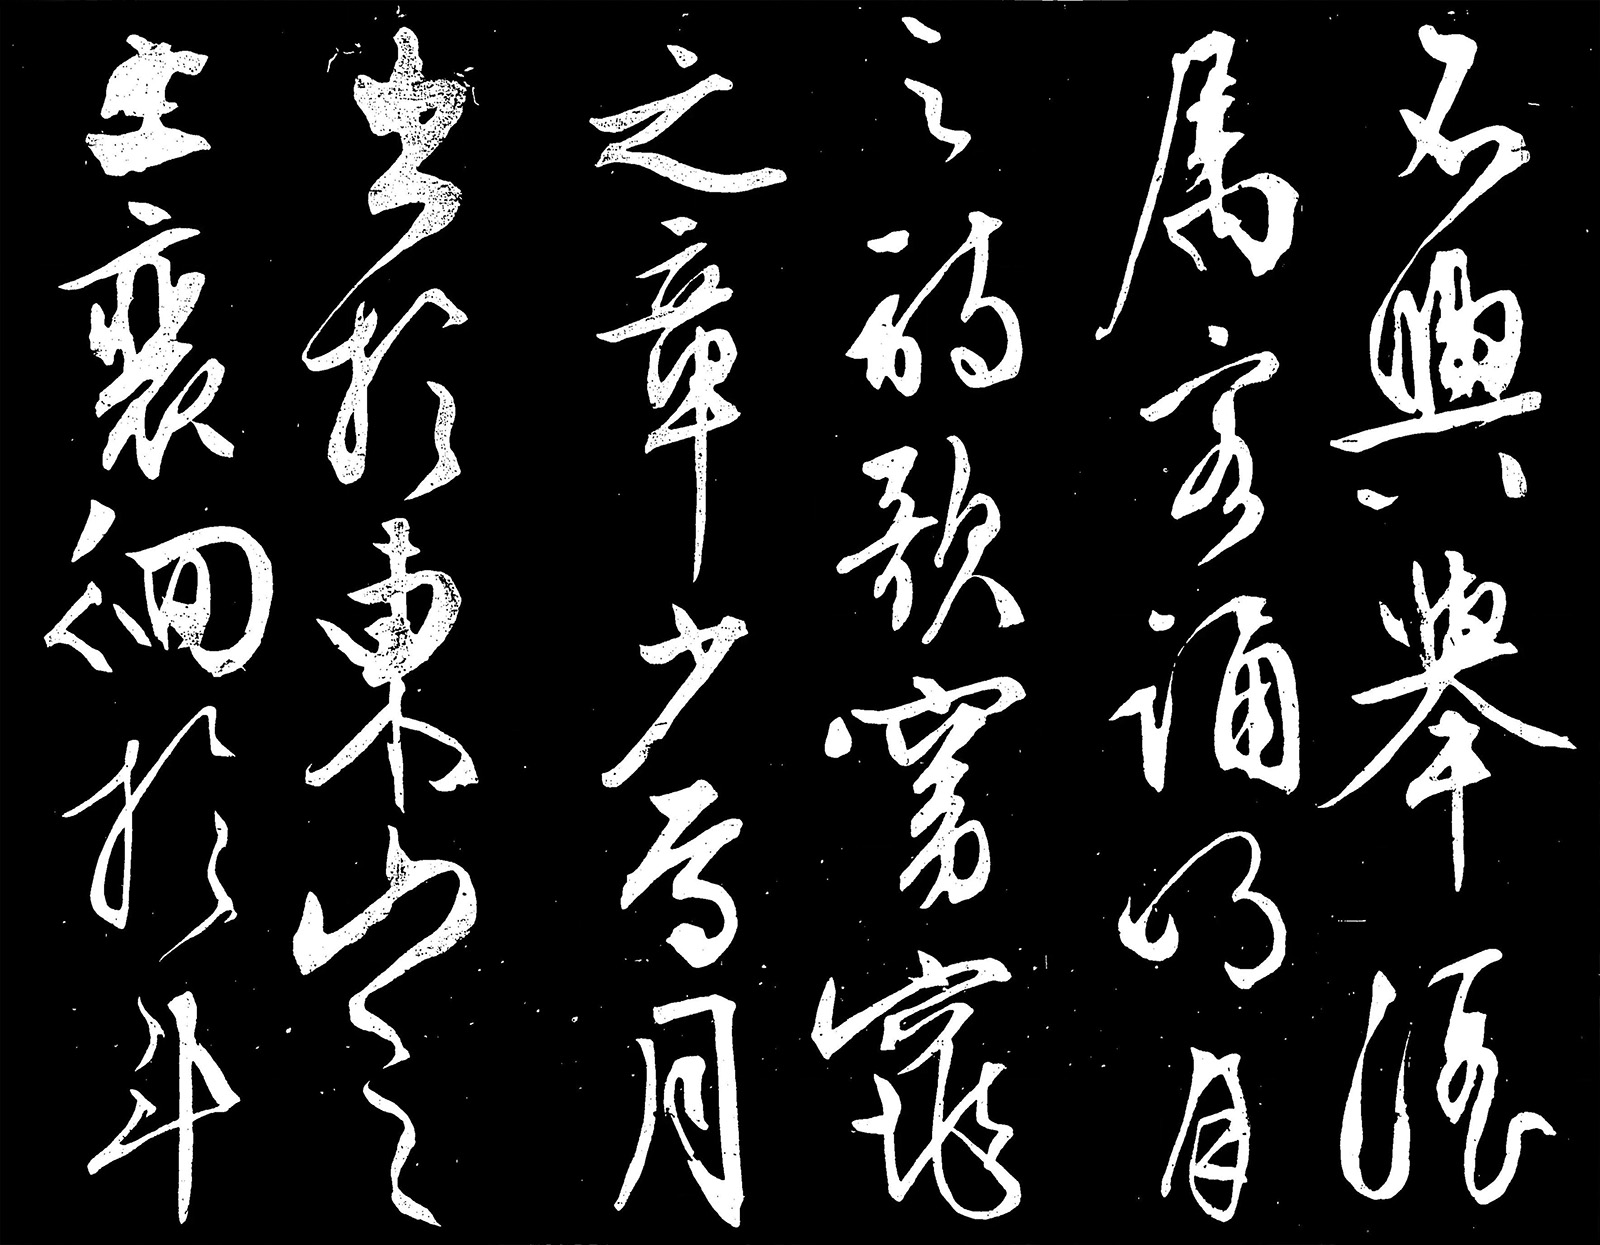 不興舉酒
属客誦明月
之詩歌窈窕
之章少焉月
出於東山之
上裵徊於斗